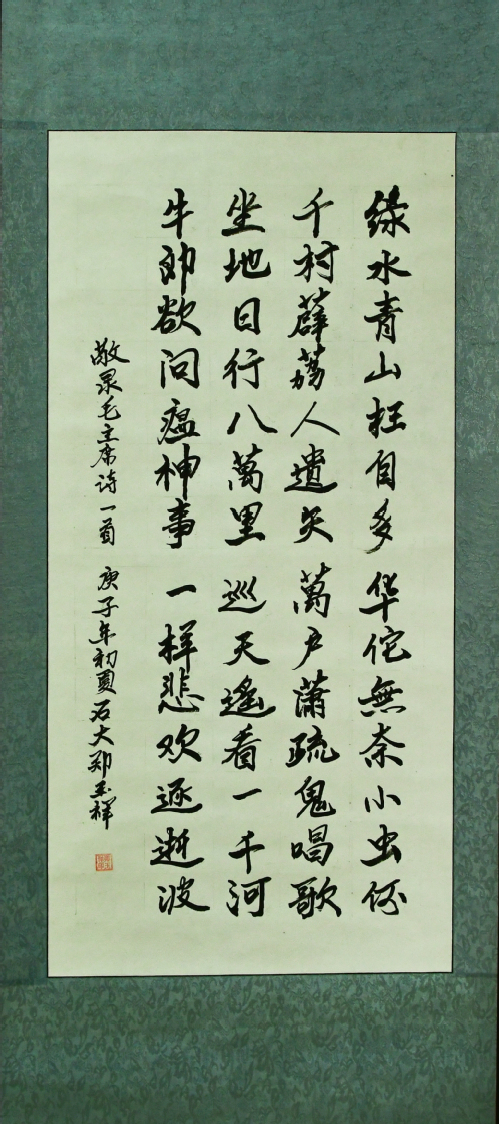 绿水青山枉自多 华佗無奈小虫何
千村薜荔人遺矢 萬户萧疏鬼唱歌
坐地日行八萬里 巡天遥看一千河
牛郎欲问瘟神事 一样悲欢逐逝波
敬录毛主席诗一首 庚子年初夏石大郑玉祥